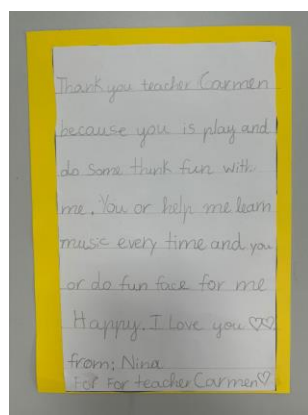 Thank you teacher Carmen
because you is play and
do some think fun with
me. You or help me learn
music every time and you
or do fun face for me
Happy. I Love you ♡♡
from: Nina
For For teacher Carmen♡